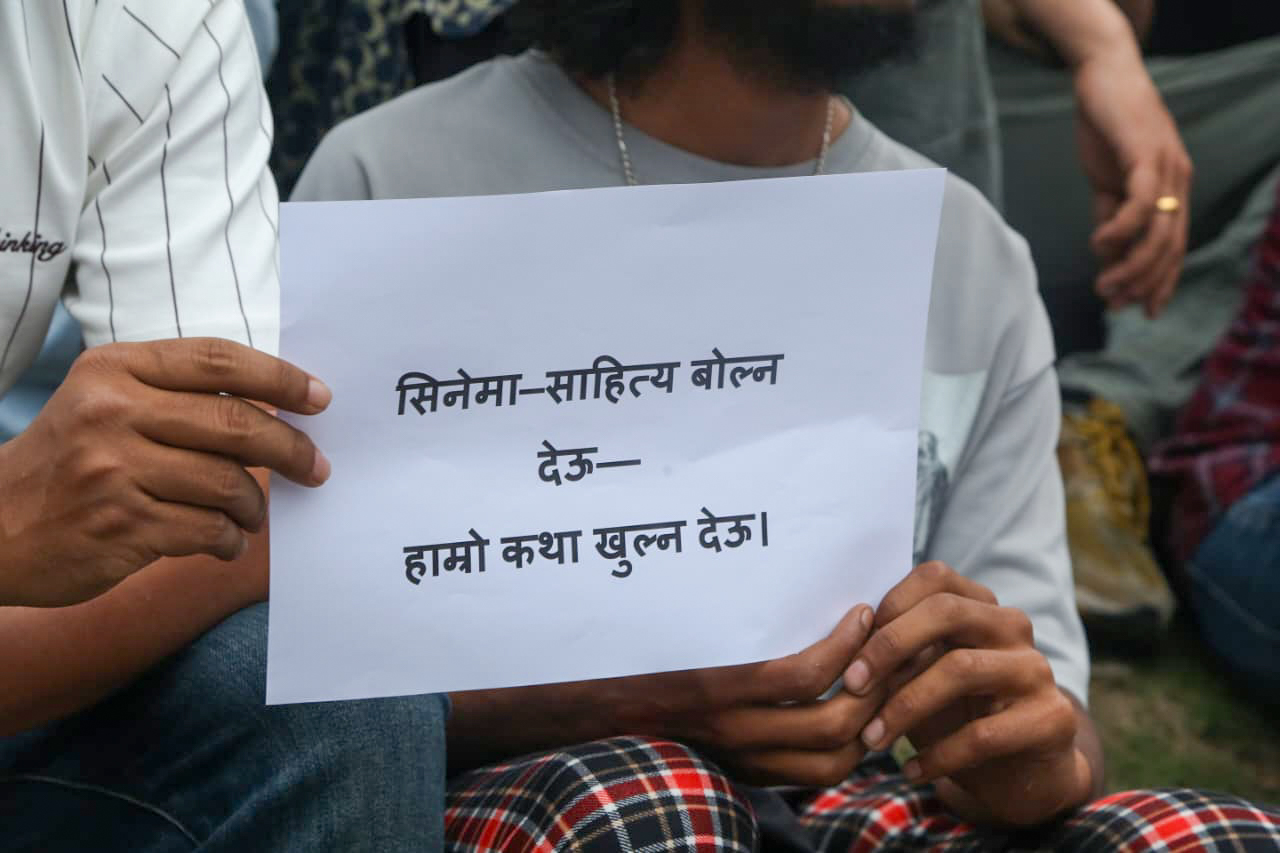 inking
सिनेमा–साहित्य बोल्न
देऊ—
हाम्रो कथा खुल्न देऊ।